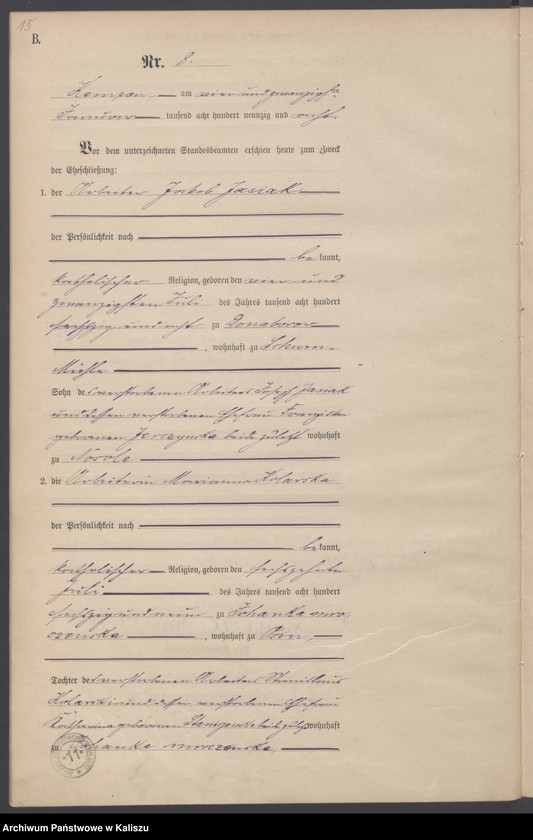 15
B.
Nr. 8.
Kempen am vierundzwanzigsten
Januar tausend acht hundert neunzig und acht.
Vor dem unterzeichneten Standesbeamten erschien heute zum Zweck
der Eheschließung:
1. der Arbeiter Jakob Jasiak
der Persönlichkeit nach
bekannt,
katholischer Religion, geboren den vier und
zwanzigsten Juli des Jahres tausend acht hundert
sechszig und acht zu Donaborow
, wohnhaft zu
Mühle
Sohn des verstorbenen Arbeiters Joseph Jasiak
und dessen verstorbenen Ehefrau Franziska
geborenen beide zuletzt wohnhaft
zu
2. die Arbeiterin Marianna Kolarska
der Persönlichkeit nach
bekannt,
katholischer Religion, geboren den sechszehnten
Juli des Jahres tausend acht hundert
sechszig und neun zu Johanka mro-
czenska, wohnhaft zu
Tochter des verstorbenen Arbeiters Stanislaus
Kolarski und dessen verstorbenen Ehefrau
Katharina geborenen beide zuletzt wohnhaft
zu Johanka mroczenska
11
Archiwum Państwowe w Kaliszu